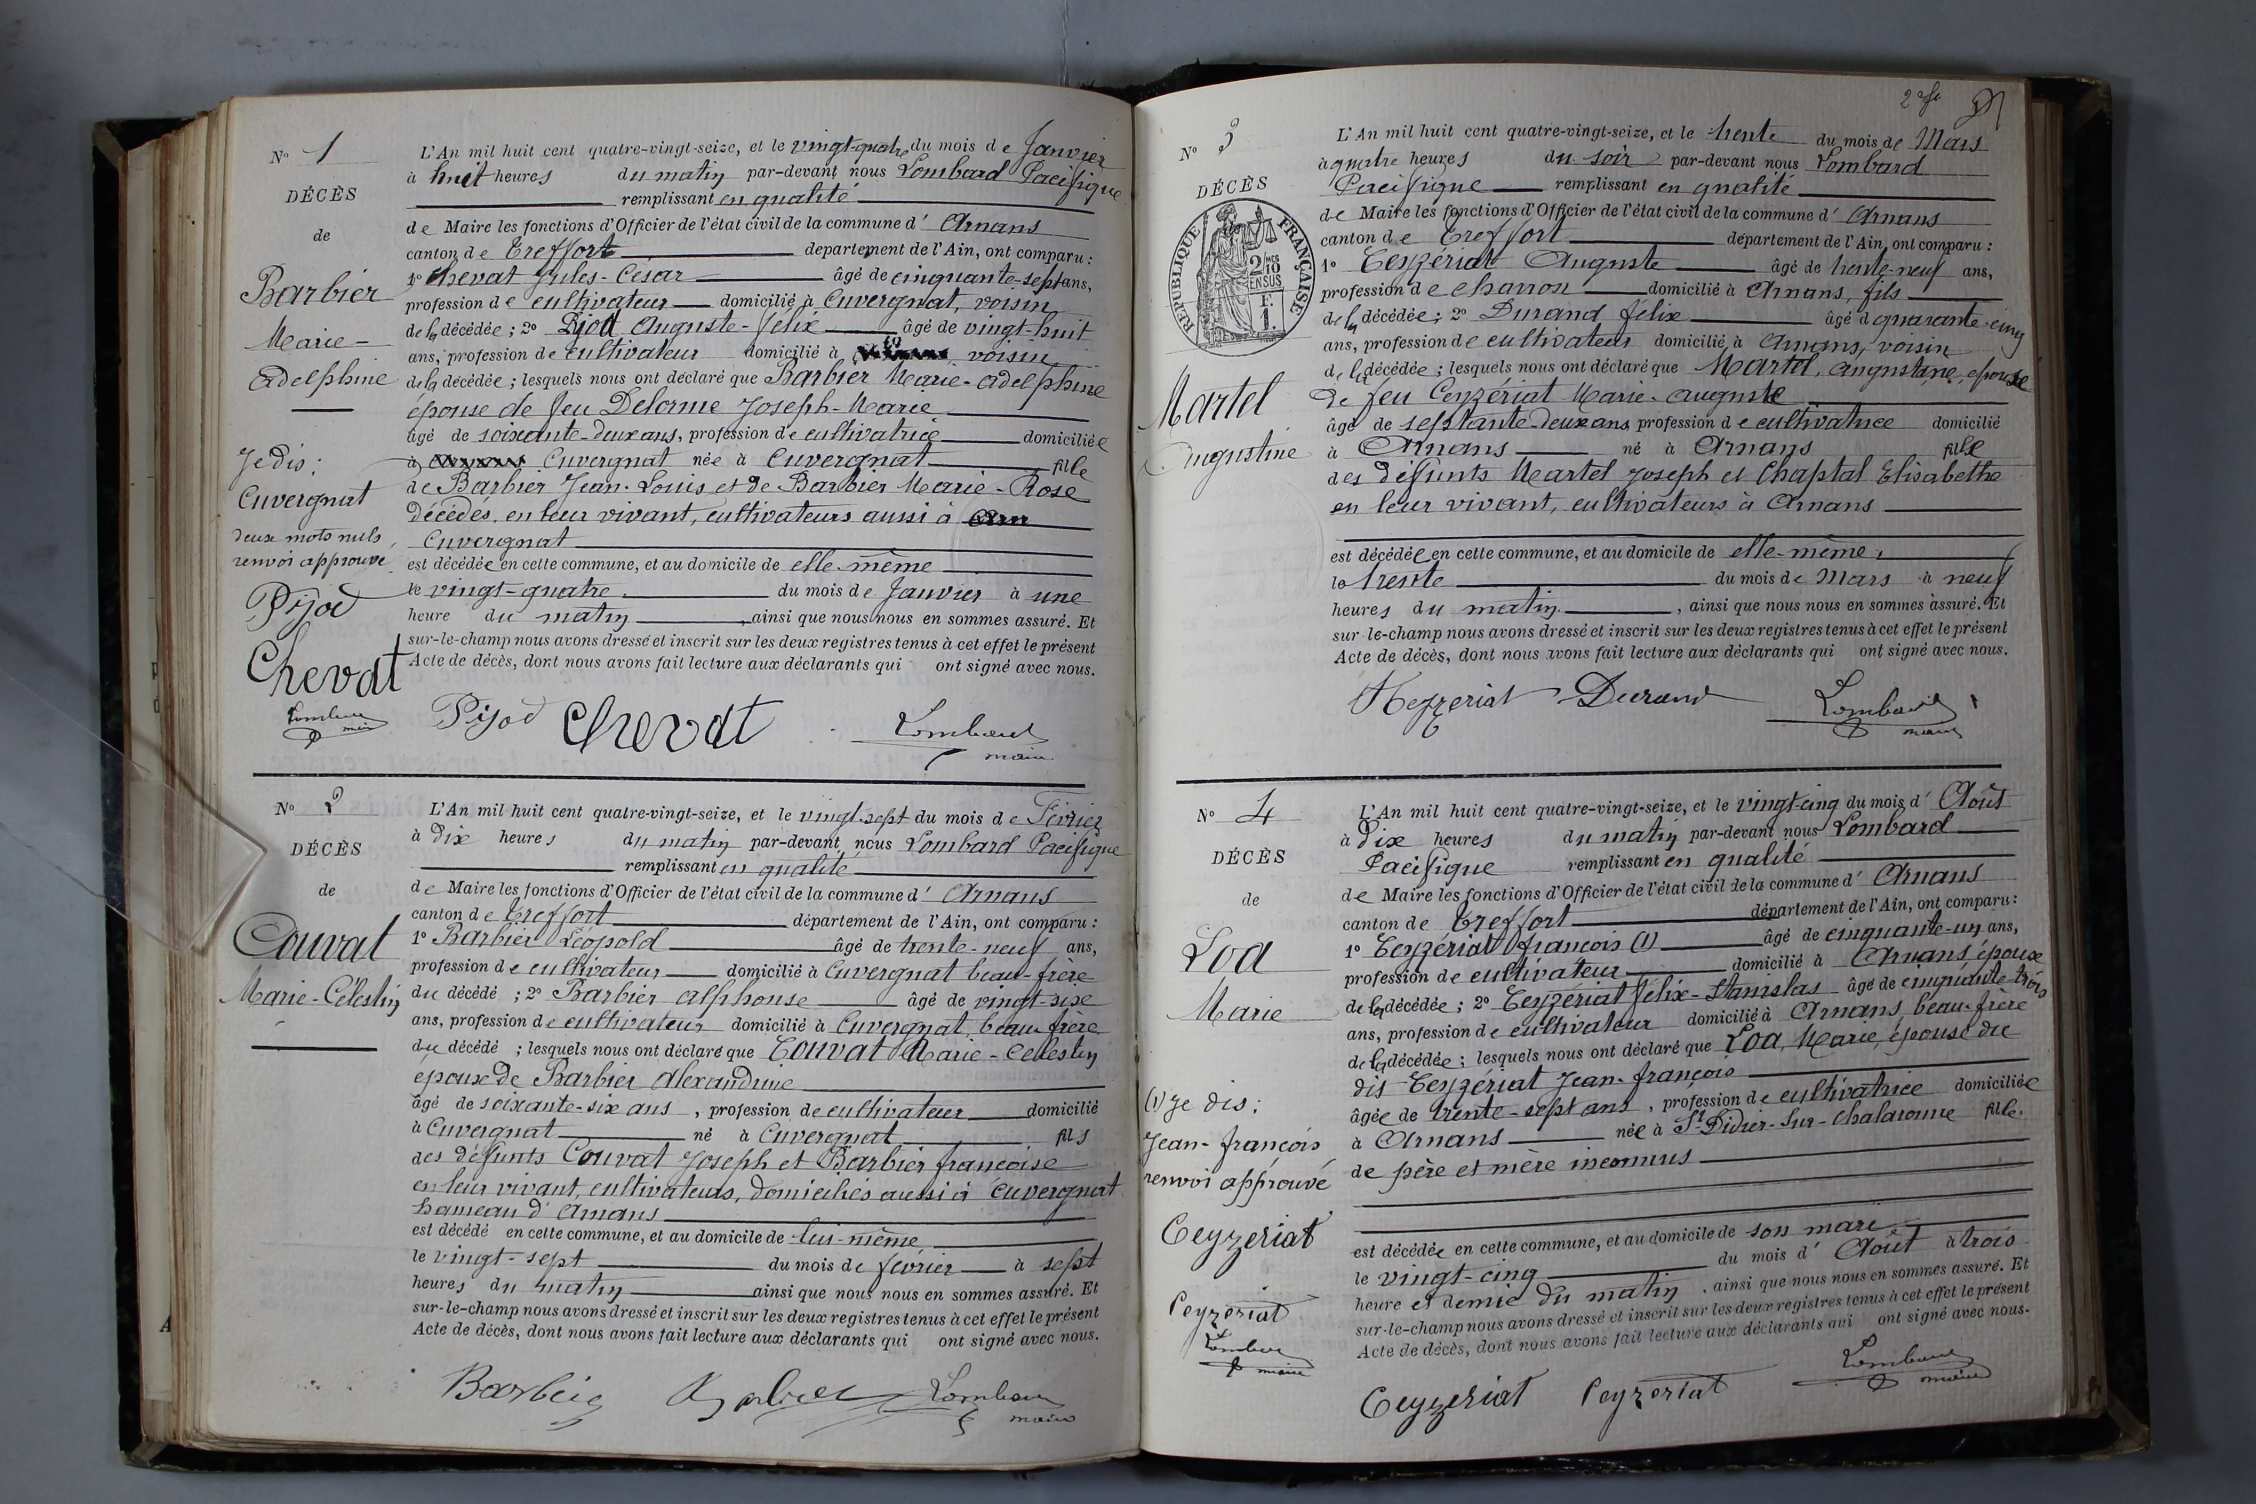 N° 1
DÉCÈS
de
Barbier
Marie-
Adelphine
Je dis:
Cuvergnat
deux mots nuls
renvoi approuvé
Pijod
Chevat
Lombard
maire
L'An mil huit cent quatre-vingt-seize, et le vingt-quatre du mois de Janvier
à huit heures du matin par-devant nous Lombard Pacifique
remplissant en qualité
de Maire les fonctions d'Officier de l'état civil de la commune d' Arnans
canton de Treffort département de l'Ain, ont comparu :
1° Chevat Jules-César âgé de cinquante-sept ans,
profession de cultivateur domicilié à Cuvergnat, voisin
de la décédée ; 2° Pijod Auguste-félix âgé de vingt-huit
ans, profession de cultivateur domicilié à voisin
de la décédée ; lesquels nous ont déclaré que Barbier Marie-Adelphine
épouse de feu Delorme Joseph-Marie
âgé de soixante-deux ans, profession de cultivatrice domiciliée
à Cuvergnat née à Cuvergnat fille
de Barbier Jean-Louis et de Barbier Marie-Rose
décédés, en leur vivant, cultivateurs aussi à
Cuvergnat
est décédée en cette commune, et au domicile de elle-même
le vingt-quatre du mois de Janvier à une
heure du matin, ainsi que nous nous en sommes assuré. Et
sur-le-champ nous avons dressé et inscrit sur les deux registres tenus à cet effet le présent
Acte de décès, dont nous avons fait lecture aux déclarants qui ont signé avec nous.
Pijod Chevat Lombard
maire
N° 2
DÉCÈS
de
Couvat
Marie-Célestin
L'An mil huit cent quatre-vingt-seize, et le vingt-sept du mois de Février
à dix heures du matin par-devant nous Lombard Pacifique
remplissant en qualité
de Maire les fonctions d'Officier de l'état civil de la commune d' Arnans
canton de Treffort département de l'Ain, ont comparu :
1° Barbier Léopold âgé de trente-neuf ans,
profession de cultivateur domicilié à Cuvergnat beau-frère
du décédé ; 2° Barbier Alphonse âgé de vingt-six
ans, profession de cultivateur domicilié à Cuvergnat, beau-frère
du décédé ; lesquels nous ont déclaré que Couvat Marie-Celestin
époux de Barbier Alexandrine
âgé de soixante-six ans, profession de cultivateur domicilié
à Cuvergnat né à Cuvergnat fils
des défunts Couvat Joseph et Barbier françoise
en leur vivant, cultivateurs, domiciliés aussi à Cuvergnat
hameau d'Arnans
est décédé en cette commune, et au domicile de lui-même
le vingt-sept du mois de février à sept
heures du matin ainsi que nous nous en sommes assuré. Et
sur-le-champ nous avons dressé et inscrit sur les deux registres tenus à cet effet le présent
Acte de décès, dont nous avons fait lecture aux déclarants qui ont signé avec nous.
Barbier Lombard
maire
N° 3
DÉCÈS
RÉPUBLIQUE FRANÇAISE
2/10 EN SUS
1 F.
Martel
Augustine
L'An mil huit cent quatre-vingt-seize, et le trente du mois de Mars
à quatre heures du soir par-devant nous Lombard
Pacifique remplissant en qualité
de Maire les fonctions d'Officier de l'état civil de la commune d' Arnans
canton de Treffort département de l'Ain, ont comparu :
1° Ceyzériat Auguste âgé de trente-neuf ans,
profession de charron domicilié à Arnans, fils
de la décédée ; 2° Durand félix âgé de quarante-cinq
ans, profession de cultivateur domicilié à Arnans, voisin
de la décédée ; lesquels nous ont déclaré que Martel, Augustine, épouse
de feu Ceyzériat Marie-Auguste
âgé de septante-deux ans, profession de cultivatrice domicilié
à Arnans né à Arnans fille
des défunts Martel Joseph et Chaptal Elisabeth
en leur vivant, cultivateurs à Arnans
est décédée en cette commune, et au domicile de elle-même,
le trente du mois de Mars à neuf
heures du matin, ainsi que nous nous en sommes assuré. Et
sur-le-champ nous avons dressé et inscrit sur les deux registres tenus à cet effet le présent
Acte de décès, dont nous avons fait lecture aux déclarants qui ont signé avec nous.
Durand Lombard
maire
N° 4
DÉCÈS
de
Loa
Marie
(1) Je dis:
Jean-françois
renvoi approuvé
Ceyzeriat
Ceyzeriat
Lombard
maire
L'An mil huit cent quatre-vingt-seize, et le vingt-cinq du mois d' Août
à dix heures du matin par-devant nous Lombard
Pacifique remplissant en qualité
de Maire les fonctions d'Officier de l'état civil de la commune d' Arnans
canton de Treffort département de l'Ain, ont comparu :
1° Ceyzériat françois (1) âgé de cinquante-un ans,
profession de cultivateur domicilié à Arnans époux
de la décédée ; 2° Ceyzériat félix-Stanislas âgé de cinquante-trois
ans, profession de cultivateur domicilié à Arnans, beau-frère
de la décédée ; lesquels nous ont déclaré que Loa, Marie, épouse du
dis Ceyzériat Jean-françois
âgée de trente-sept ans, profession de cultivatrice domiciliée
à Arnans née à St-Didier-sur-Chalaronne fille
de père et mère inconnus
est décédée en cette commune, et au domicile de son mari
le vingt-cinq du mois d' Août à trois
heure et demie du matin, ainsi que nous nous en sommes assuré. Et
sur-le-champ nous avons dressé et inscrit sur les deux registres tenus à cet effet le présent
Acte de décès, dont nous avons fait lecture aux déclarants qui ont signé avec nous.
Ceyzeriat Ceyzeriat Lombard
maire